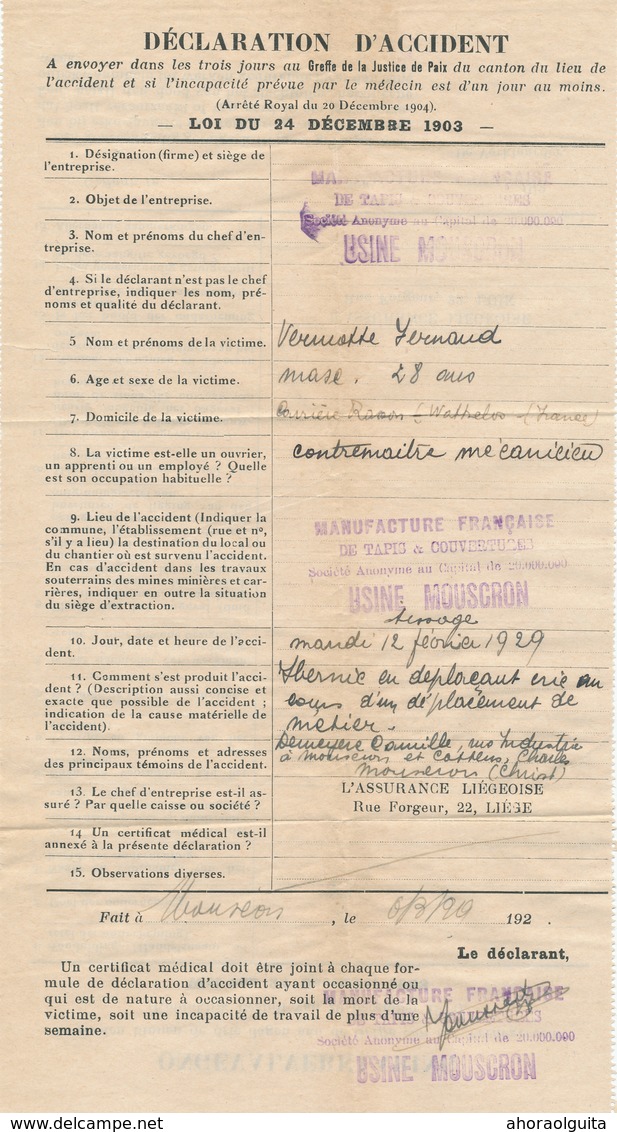 DÉCLARATION D'ACCIDENT
A envoyer dans les trois jours au Greffe de la Justice de Paix du canton du lieu de
l'accident et si l'incapacité prévue par le médecin est d'un jour au moins.
(Arrêté Royal du 20 Décembre 1904).
— LOI DU 24 DÉCEMBRE 1903 —
1. Désignation (firme) et siège de
l'entreprise.
2. Objet de l'entreprise.
3. Nom et prénoms du chef d'en-
treprise.
MANUFACTURE FRANÇAISE
DE TAPIS & COUVERTURES
Société Anonyme au Capital de 20.000.000
USINE MOUSCRON
4. Si le déclarant n'est pas le chef
d'entreprise, indiquer les nom, pré-
noms et qualité du déclarant.
5 Nom et prénoms de la victime.
Vermotte Fernand
6. Age et sexe de la victime.
masc. 28 ans
7. Domicile de la victime.
Carrière - Wattrelos - (France)
8. La victime est-elle un ouvrier,
un apprenti ou un employé ? Quelle
est son occupation habituelle ?
contremaitre mécanicien
9. Lieu de l'accident (Indiquer la
commune, l'établissement (rue et n°,
s'il y a lieu) la destination du local ou
du chantier où est survenu l'accident.
En cas d'accident dans les travaux
souterrains des mines minières et car-
rières, indiquer en outre la situation
du siège d'extraction.
MANUFACTURE FRANÇAISE
DE TAPIS & COUVERTURES
Société Anonyme au Capital de 20.000.000
USINE MOUSCRON
tissage
10. Jour, date et heure de l'acci-
dent.
mardi 12 février 1929
11. Comment s'est produit l'acci-
dent ? (Description aussi concise et
exacte que possible de l'accident ;
indication de la cause matérielle de
l'accident).
en déplaçant cric au
cours d'un déplacement de
métier.
12. Noms, prénoms et adresses
des principaux témoins de l'accident.
Demeyere Camille, rue Industrie
à Mouscron et Cottens, Charles
Mouscron (Christ)
13. Le chef d'entreprise est-il as-
suré ? Par quelle caisse ou société ?
L'ASSURANCE LIÉGEOISE
Rue Forgeur, 22, LIÉGE
14 Un certificat médical est-il
annexé à la présente déclaration ?
15. Observations diverses.
Fait à Mouscron, le 192 .
Le déclarant,
Un certificat médical doit être joint à chaque for-
mule de déclaration d'accident ayant occasionné ou
qui est de nature à occasionner, soit la mort de la
victime, soit une incapacité de travail de plus d'une
semaine.
MANUFACTURE FRANÇAISE
DE TAPIS & COUVERTURES
Société Anonyme au Capital de 20.000.000
USINE MOUSCRON
www.delcampe.net
ahoraolguita